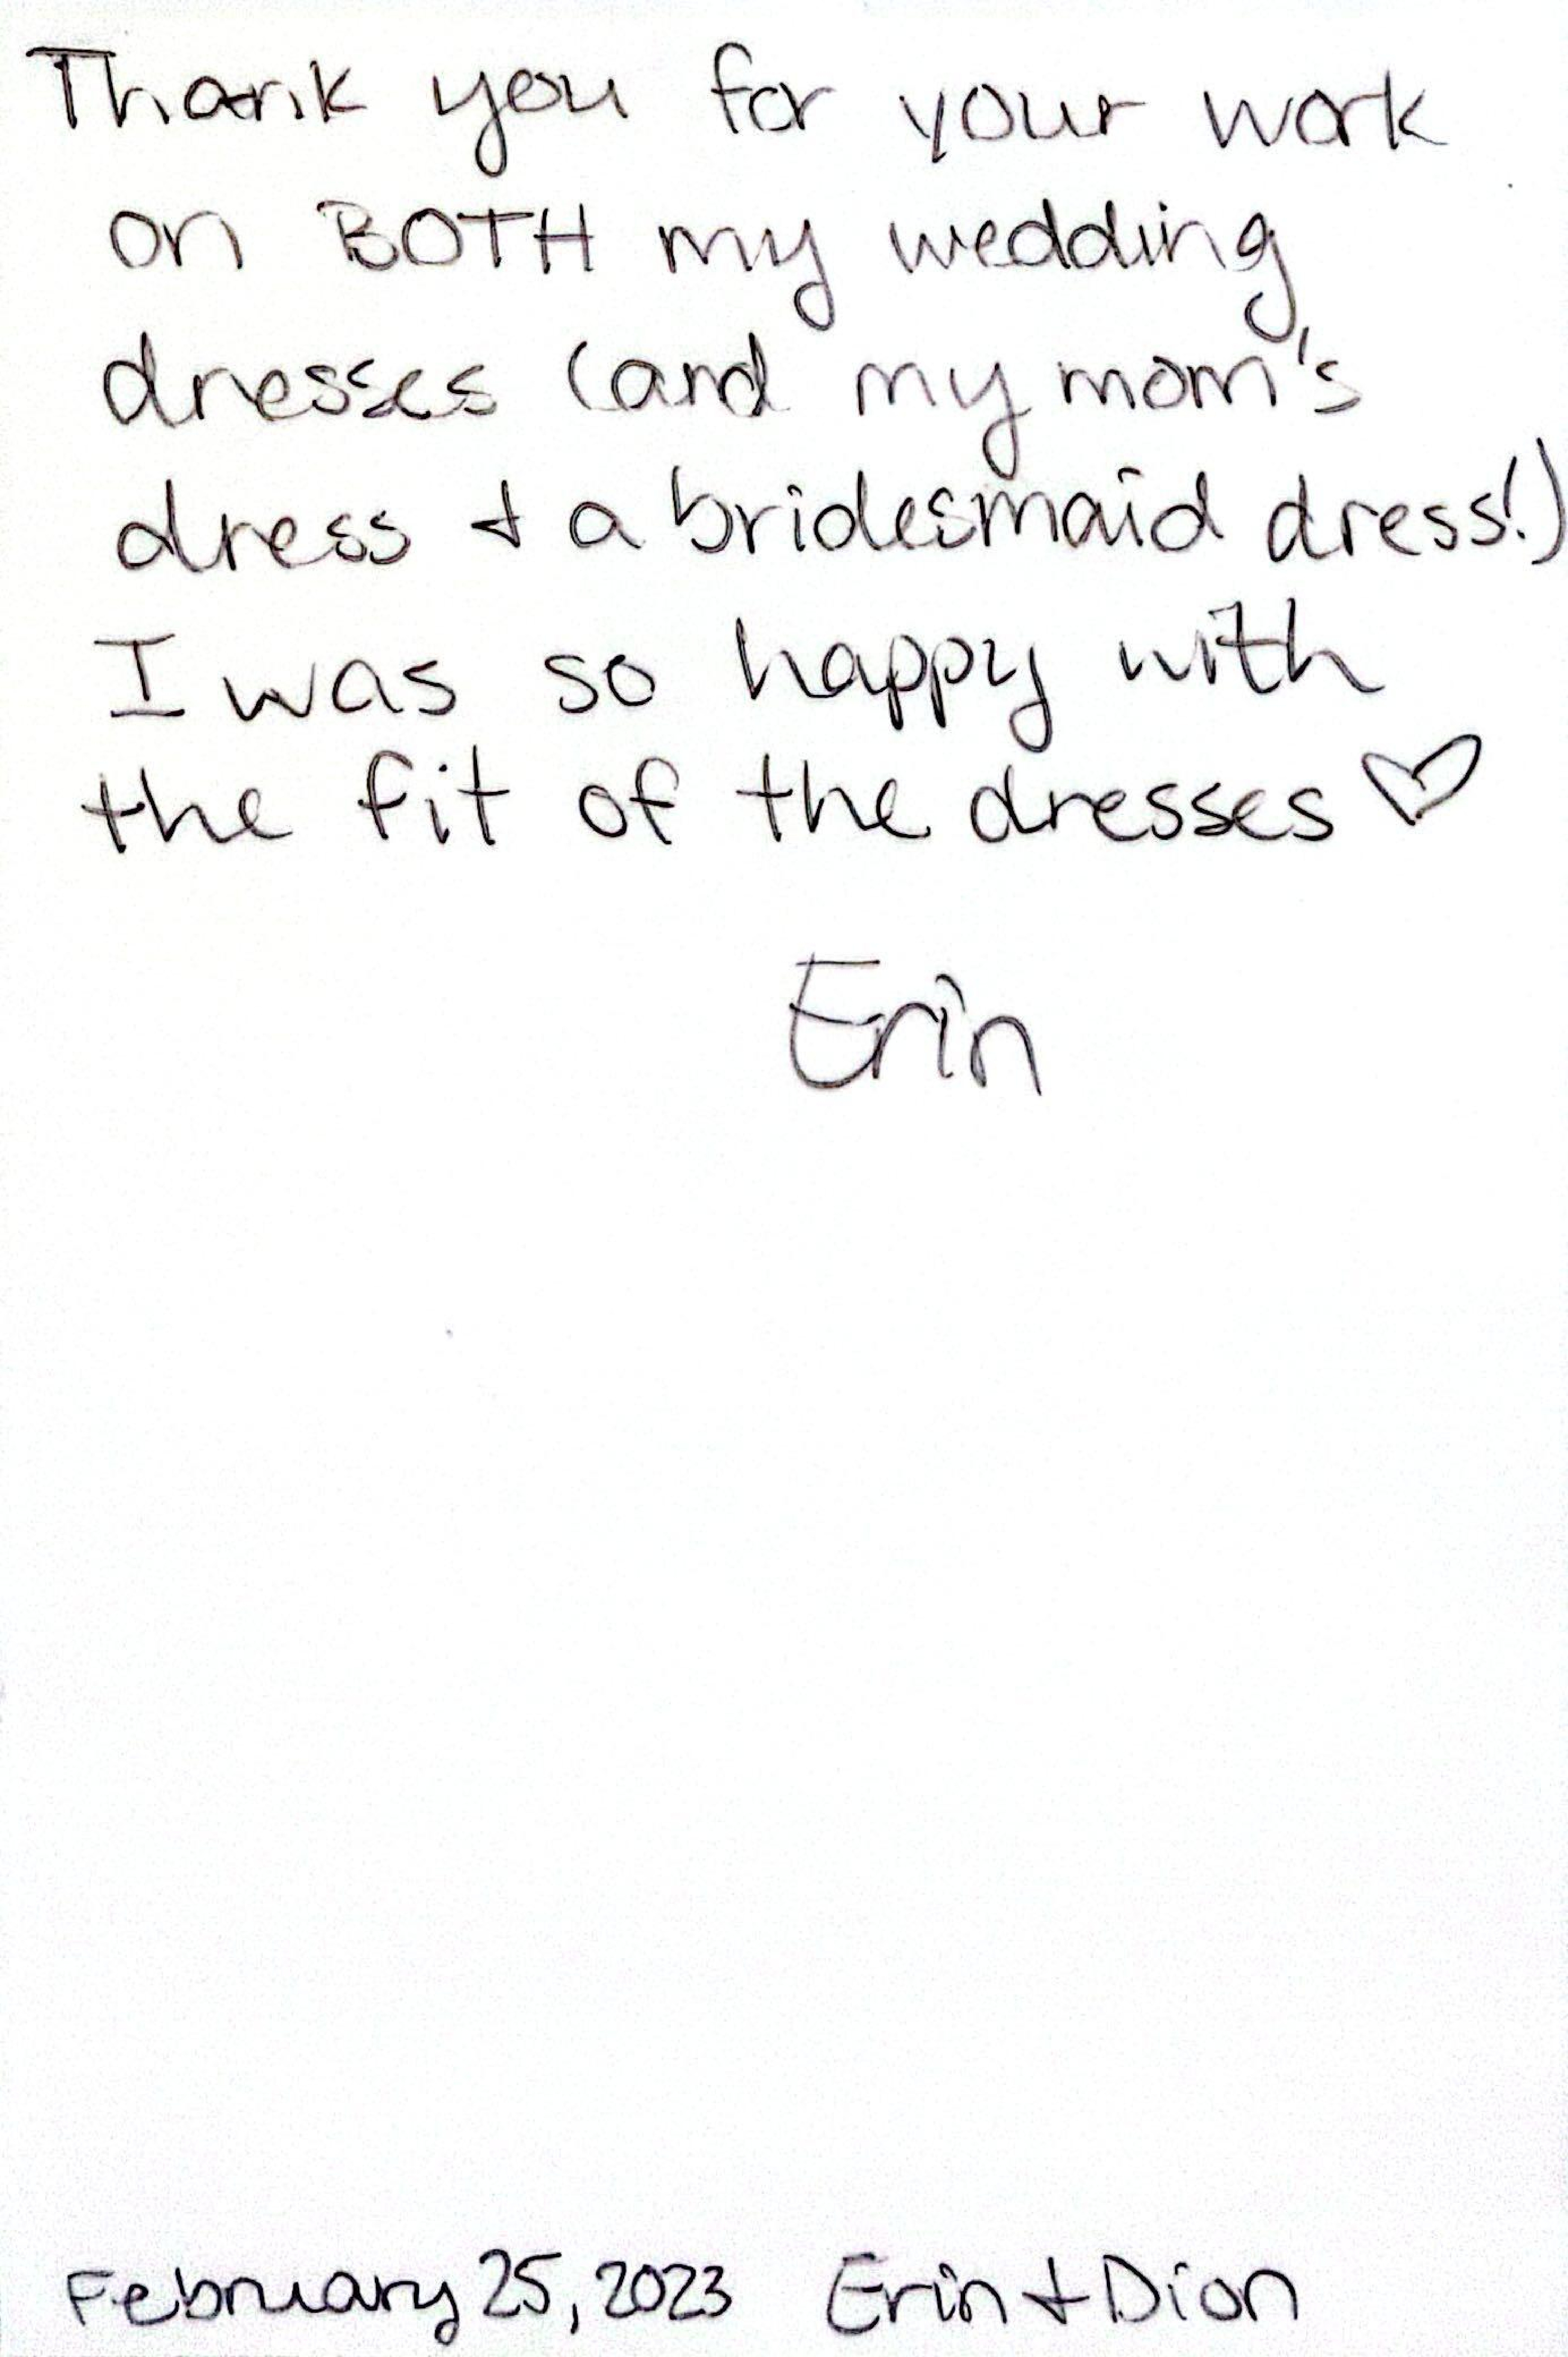 Thank you for your work
on BOTH my wedding
dresses (and my mom's
dress + a bridesmaid dress!)
I was so happy with
the fit of the dresses ♡
Erin
February 25, 2023 Erin + Dion